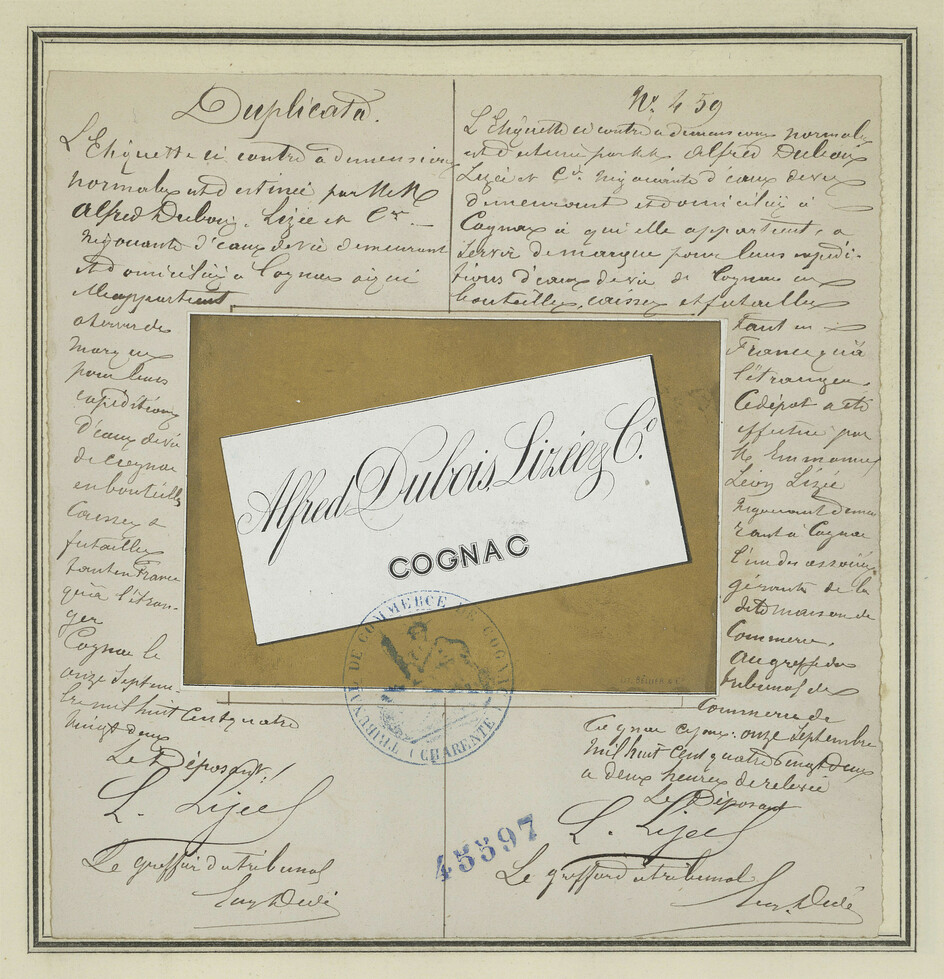 Duplicata.
L'Etiquette ci contre à dimensions
normales est destinée par M.M.
Alfred Dubois, Lizée et Cie
Négociants d'eaux de vie demeurant
et domiciliés à Cognac à qui
elle appartient
a servir de
marque
pour leurs
expéditions
d'eaux de vie
de Cognac
en bouteilles
caisses &
futailles
tant en France
qu'à l'étran-
ger
Cognac le
onze Septem-
bre mil huit cent quatre
vingt deux
Le Déposant
L. Lizée
Le greffier du tribunal
Nº 459
L'Etiquette ci contre à dimensions normales
est destinée par M.M. Alfred Dubois
Lizée et Cie Négociants d'eaux de vie
demeurant et domiciliés à
Cognac à qui elle appartient, a
servir de marque pour leurs expédi-
tions d'eaux de vie de Cognac en
bouteilles, caisses et futailles
tant en
France qu'à
l'étranger.
Ce dépôt a été
effectué par
M. Emmanuel
Léon Lizée
Négociant demeu-
rant à Cognac
l'un des associés
gérants de la
dite maison de
Commerce,
Au greffe du
tribunal de
Commerce de
Cognac ce jour: onze Septembre
mil huit cent quatre vingt deux
a deux heures de relevée
Le Déposant
L. Lizée
Le greffier du tribunal
Alfred Dubois, Lizée & Cº.
COGNAC
DE COMMERCE DE COGNAC
(CHARENTE)
45597